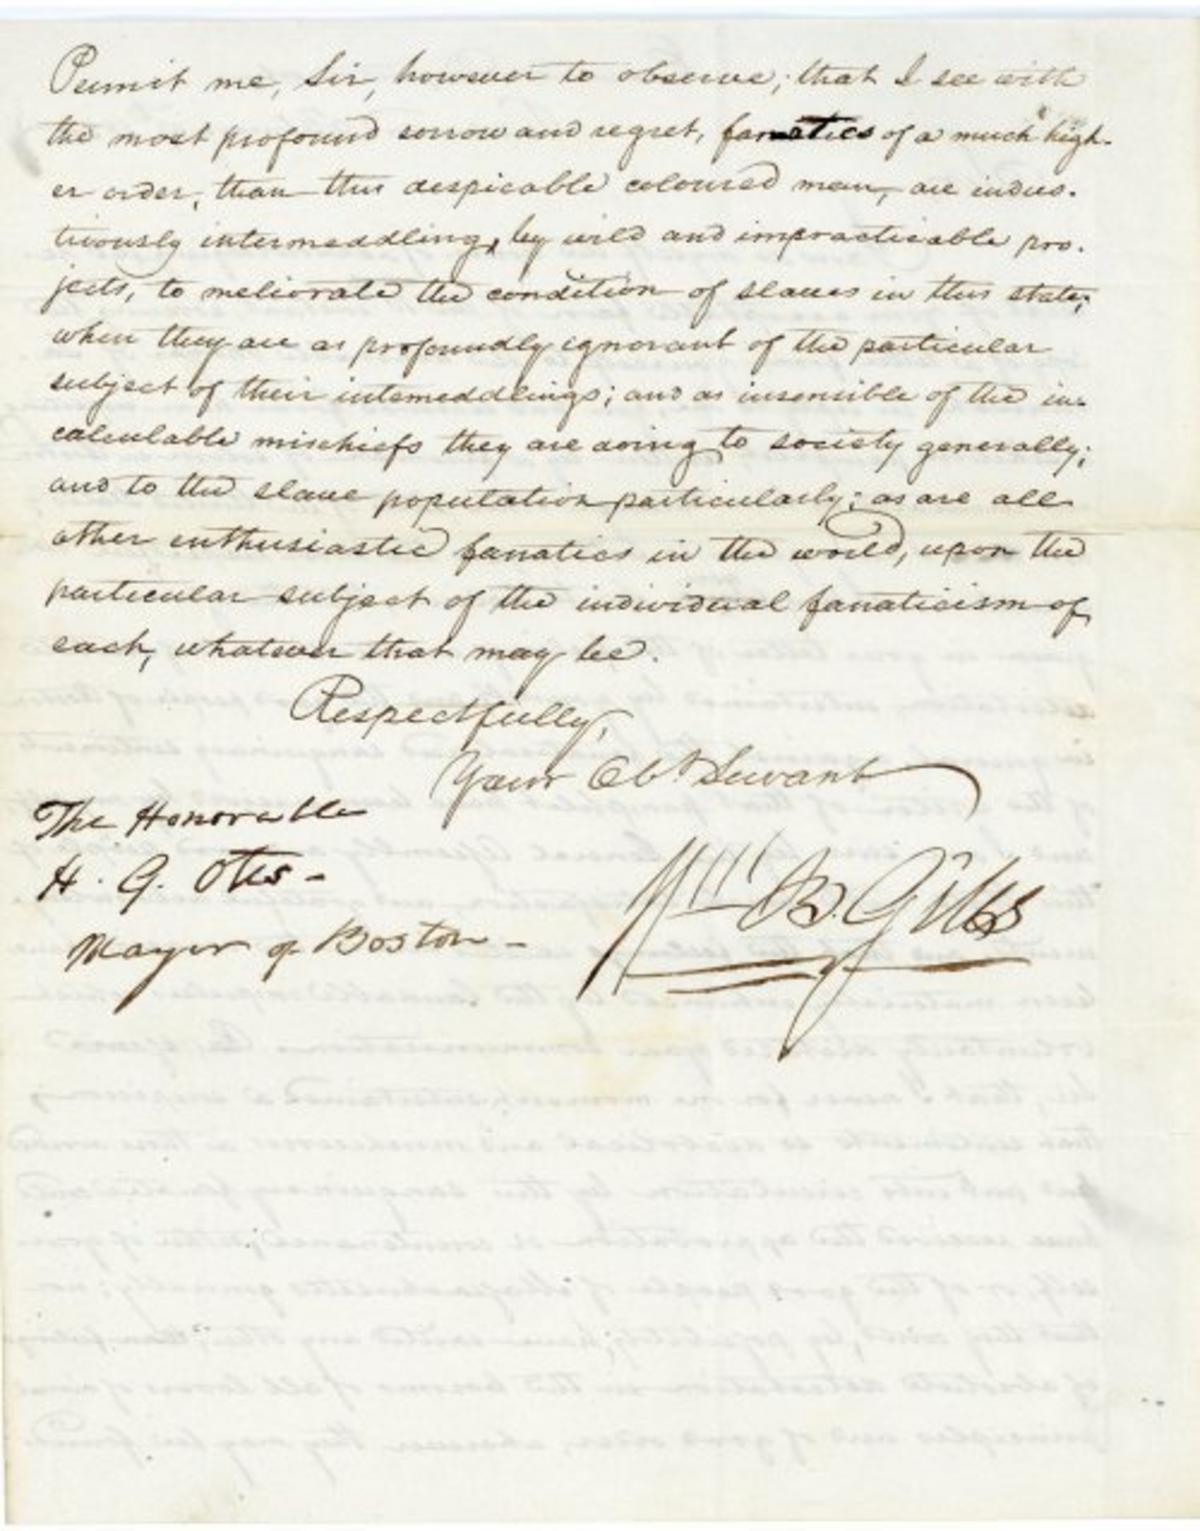 Permit me, Sir, however to observe; that I see with
the most profound sorrow and regret, fanatics of a much high-
er order, than this despicable coloured man, are indus-
triously intermeddling, by wild and impracticable pro-
jects, to meliorate the condition of slaves in this state;
when they are as profoundly ignorant of the particular
subject of their intemeddlings; and as insensible of the in-
calculable mischiefs they are doing to society generally;
and to the slave population particularly; as are all
other enthusiastic fanatics in the world, upon the
particular subject of the individual fanaticism of
each, whatever that may be.
Respectfully,
Your Obt Servant
The Honorable
H. G. Otis -
Mayor of Boston -
Wm B. Giles